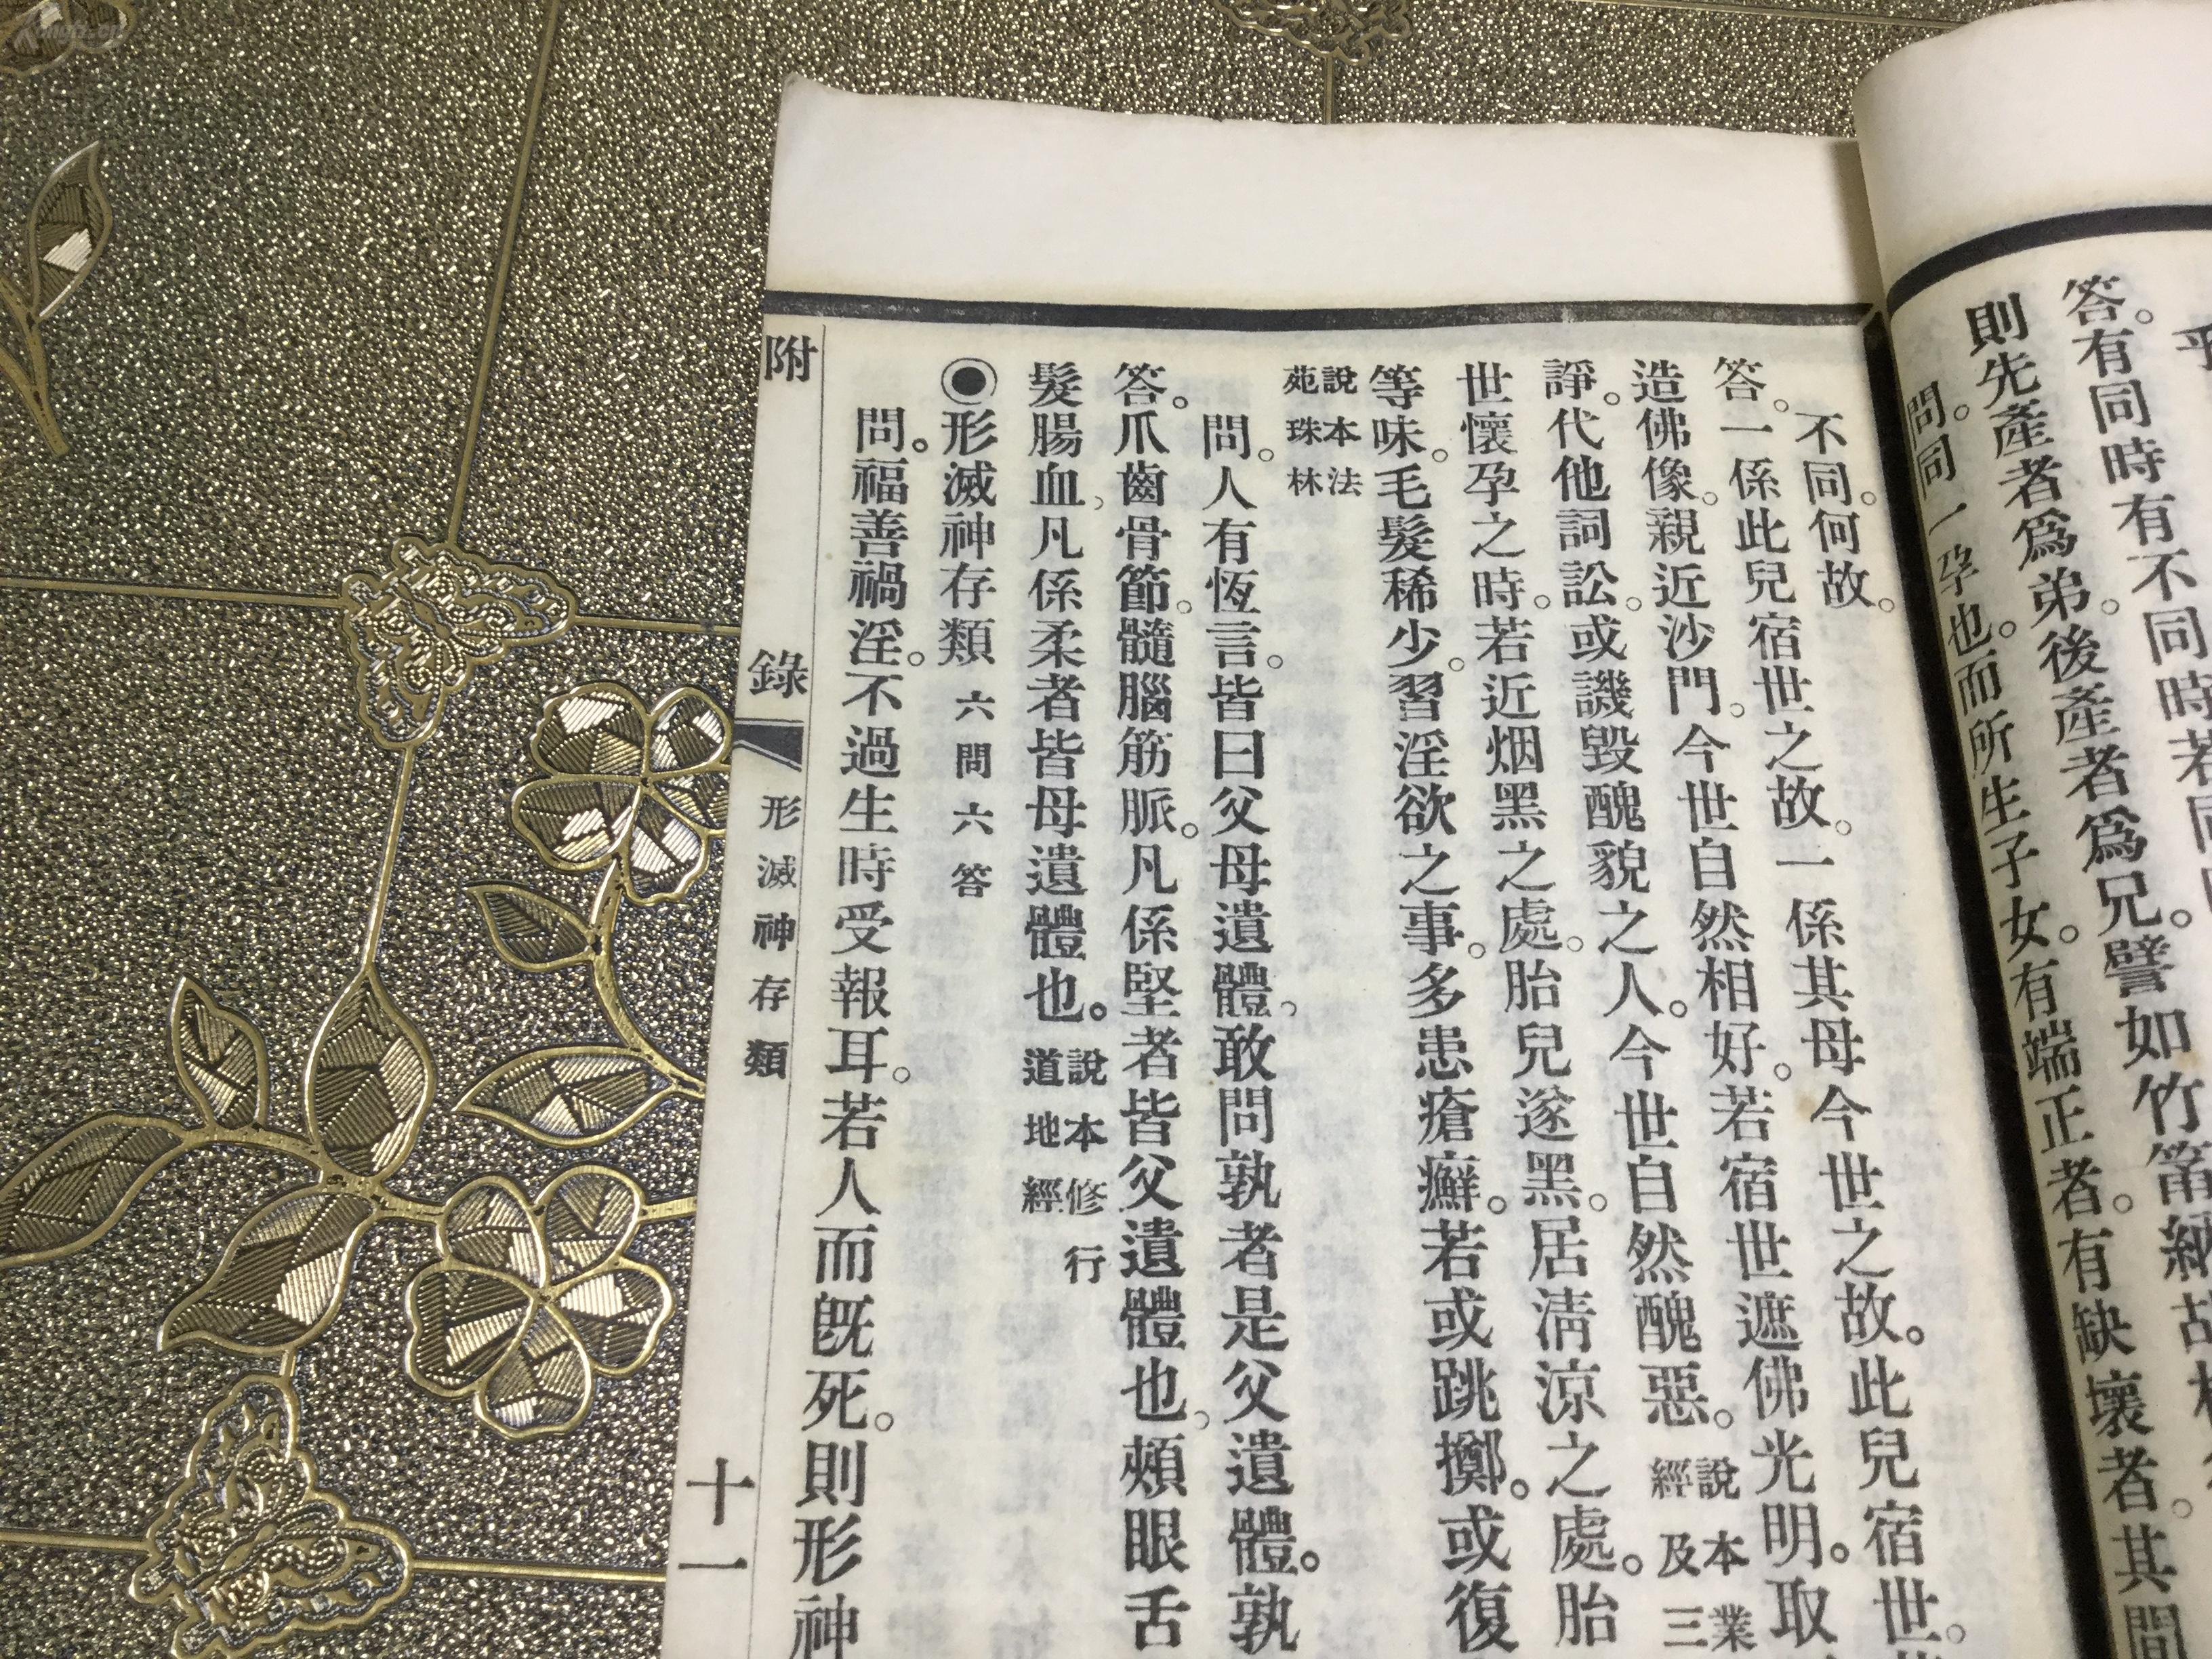 乎
答。有同時有不同時若同
則先產者爲弟。後產者爲兄。譬如竹筩納
問。同一孕也。而所生子女。有端正者。有缺壞者。其間
不同。何故。
答。一係此兒宿世之故。一係其母今世之故。此兒宿世。
造佛像。親近沙門。今世自然相好。若宿世遮佛光明。取
諍。代他詞訟。或譏毀醜貌之人。今世自然醜惡。說本業經及三
世懷孕之時。若近烟黑之處。胎兒遂黑。居清涼之處。胎
等味。毛髮稀少。習淫欲之事。多患瘡癬。若或跳擲。或復
說本法苑珠林
問。人有恆言。皆曰父母遺體。敢問孰者是父遺體。孰
答。爪齒骨節。髓腦筋脈。凡係堅者皆父遺體也。頰眼舌
髮腸血。凡係柔者皆母遺體也。說本修行道地經
◉形滅神存類 六問六答
問。福善禍淫。不過生時受報耳。若人而旣死。則形神
附錄 形滅神存類 十一